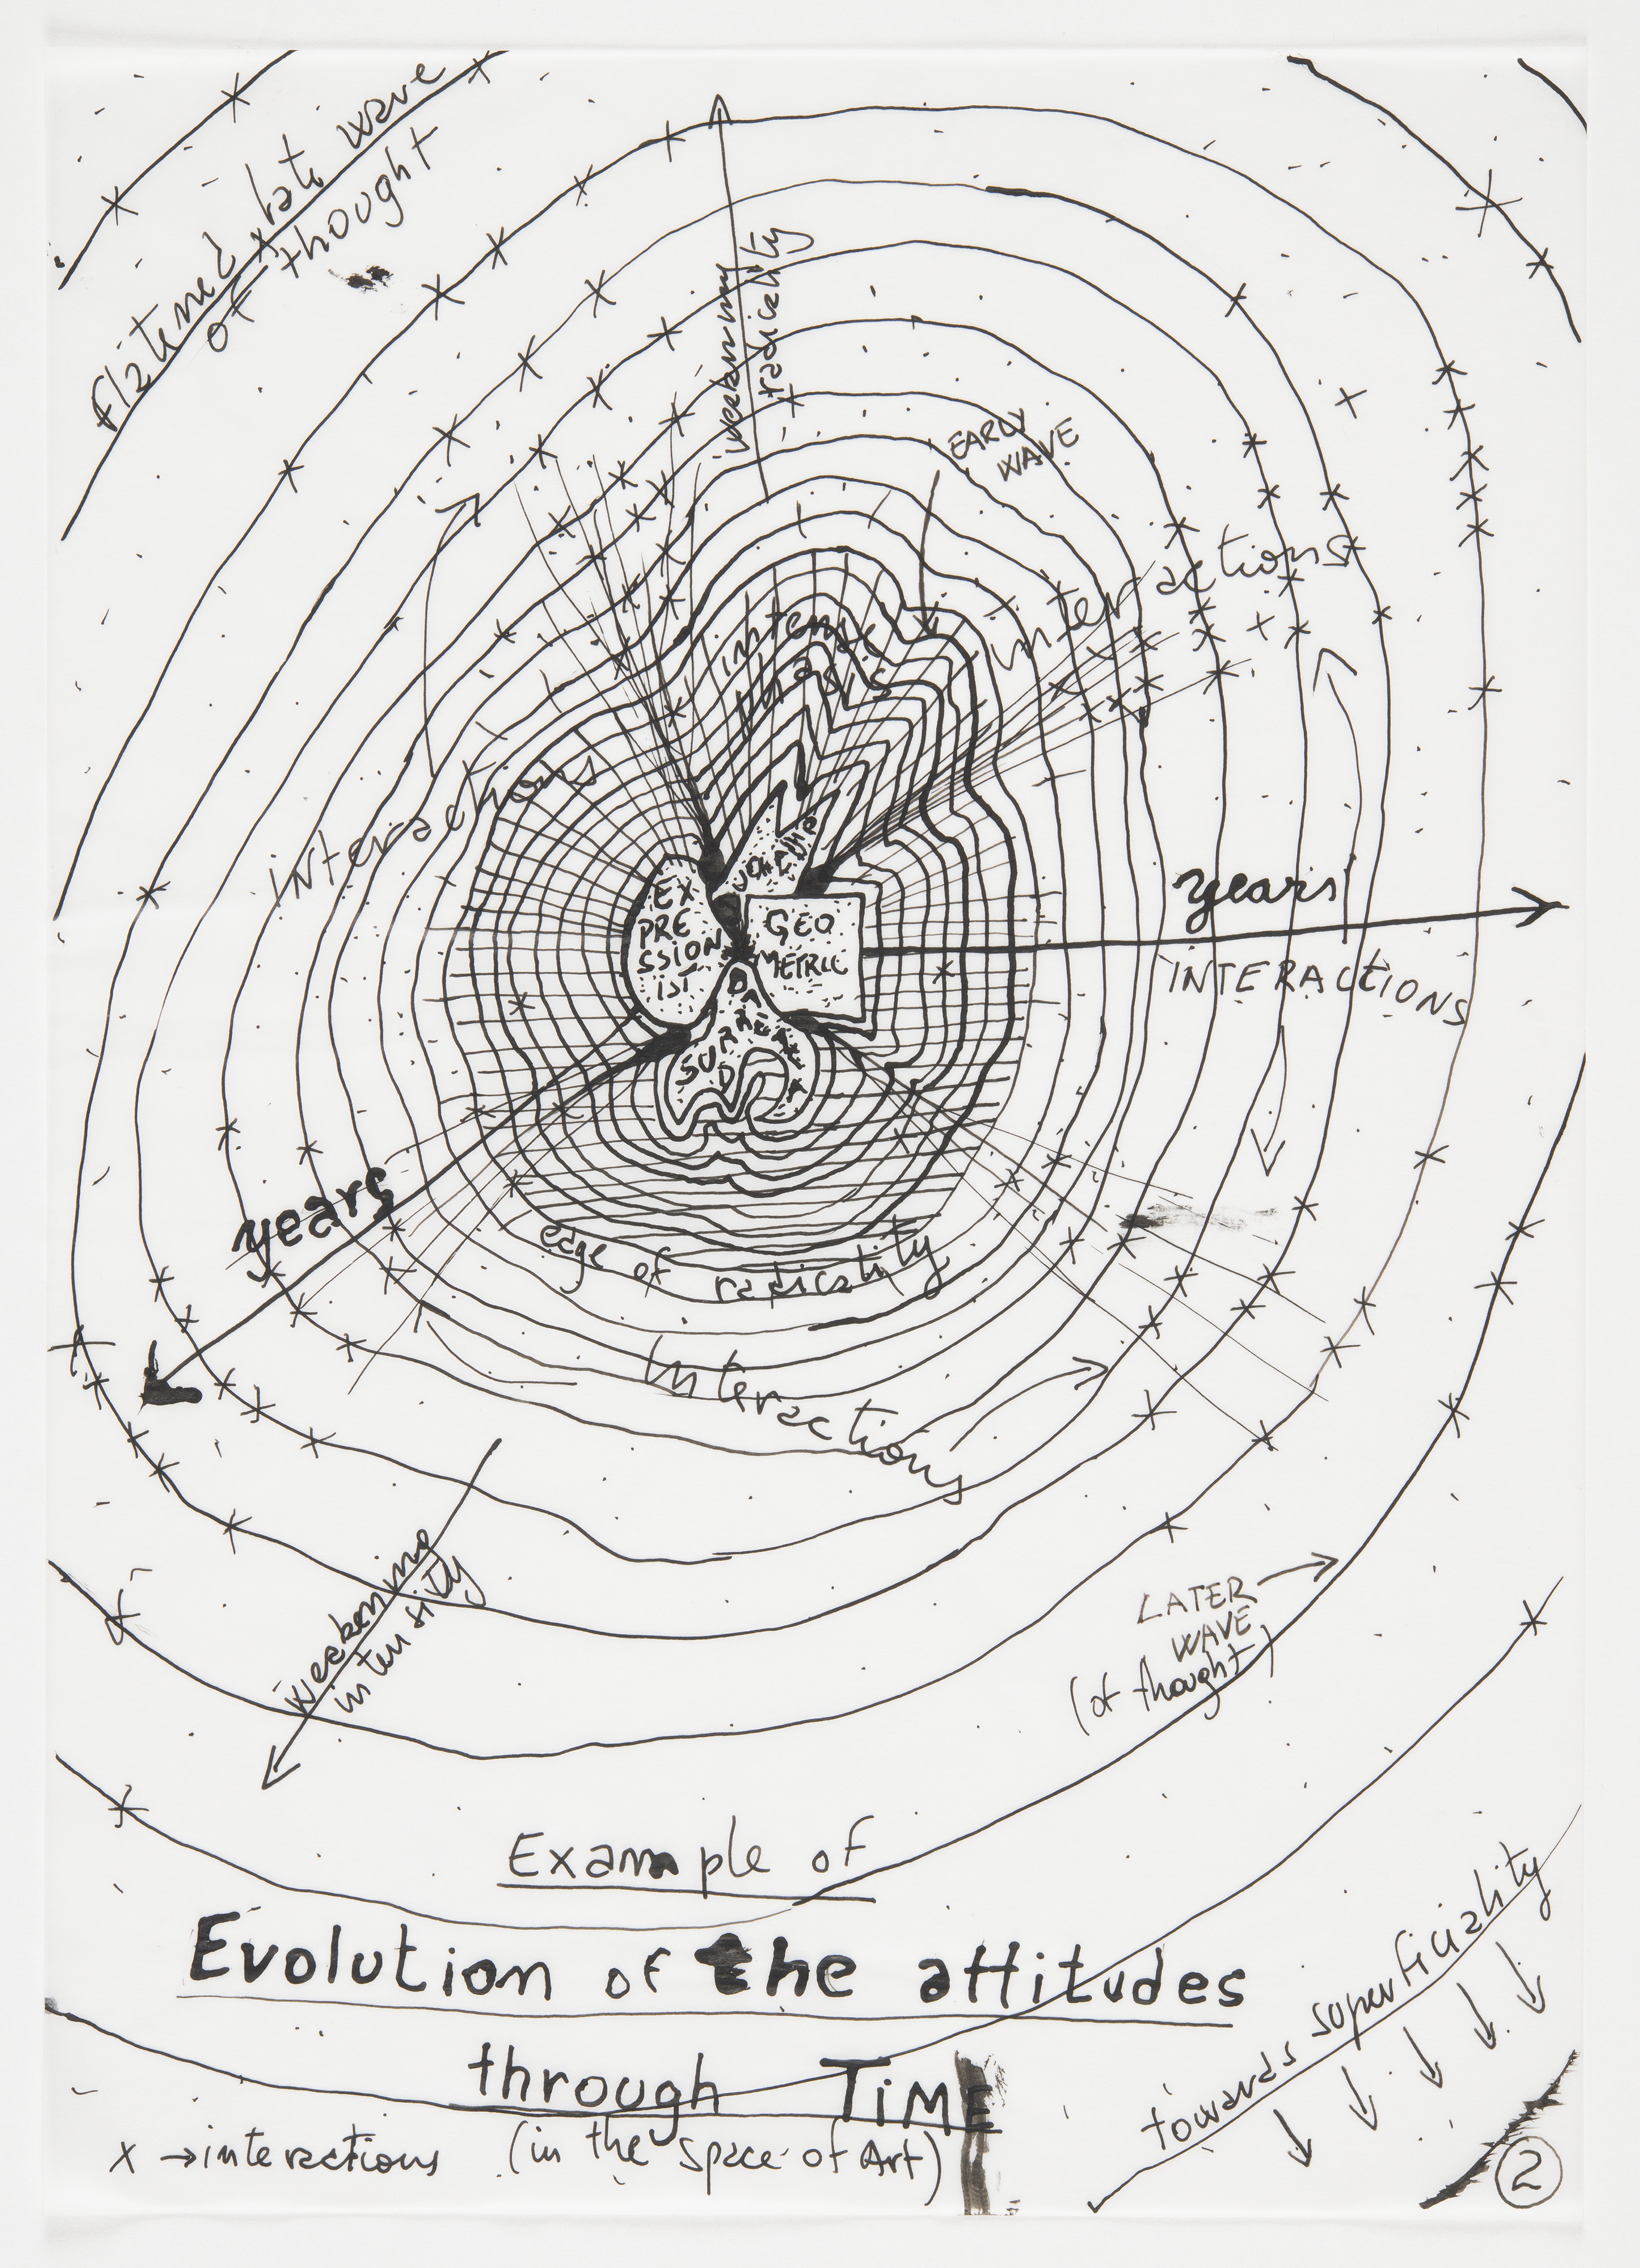 flatened late wave
of thought
weakening
radicality
EARLY
WAVE
interactions
interactions
EX
PRE
SSION
IST
GEO
METRIC
years
INTERACTIONS
years
edge of radicality
Interactions
weakening
intensity
LATER
WAVE
(of thought)
Example of
Evolution of the attitudes
through TiME
x → interactions (in the space of Art)
towards superficiality
2